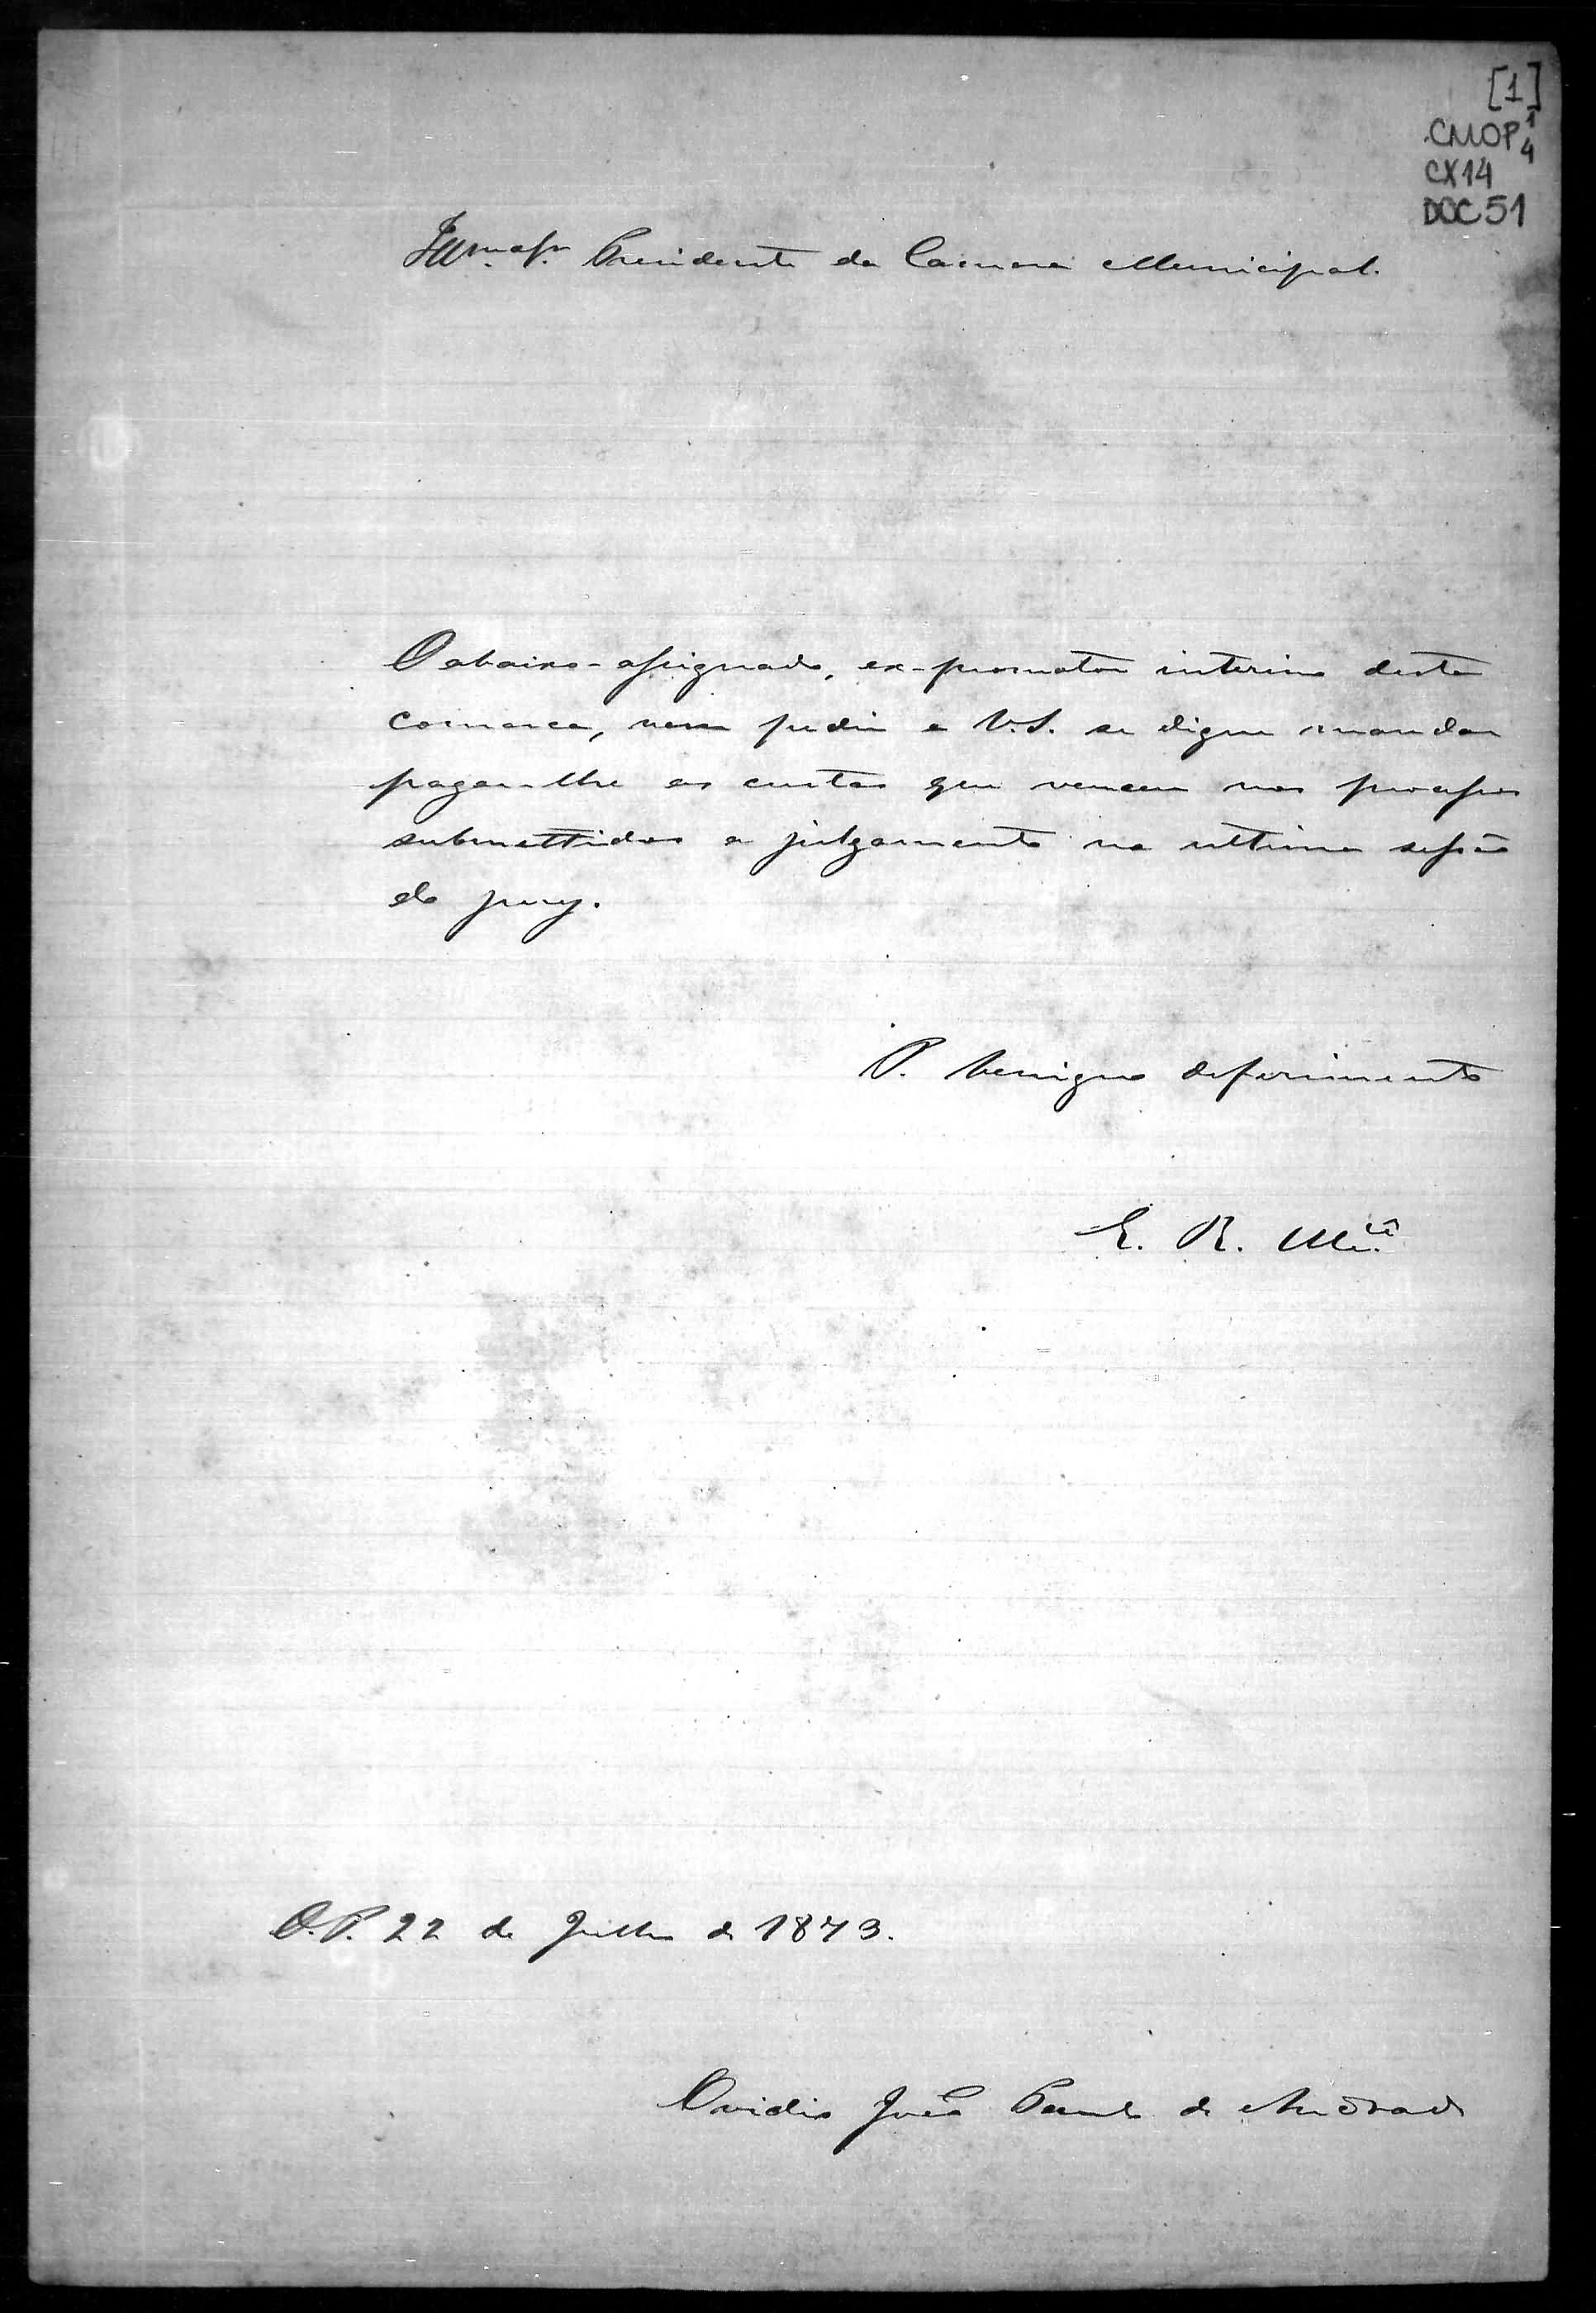 [1]
CMOP 1/4
CX14
DOC 51
Illmo Sr. Presidente da Camara Municipal.
O abaixo-assignado, ex-promotor interino desta
comarca, vem pedir a V.S. se digne mandar
pagar-lhe as custas que venceu nos processos
submettidos a julgamento na ultima sessão
do jury.
P. benigno deferimento
E. R. Mce.
O.P. 22 de Julho de 1873.
Ovidio João Paulo de Andrade